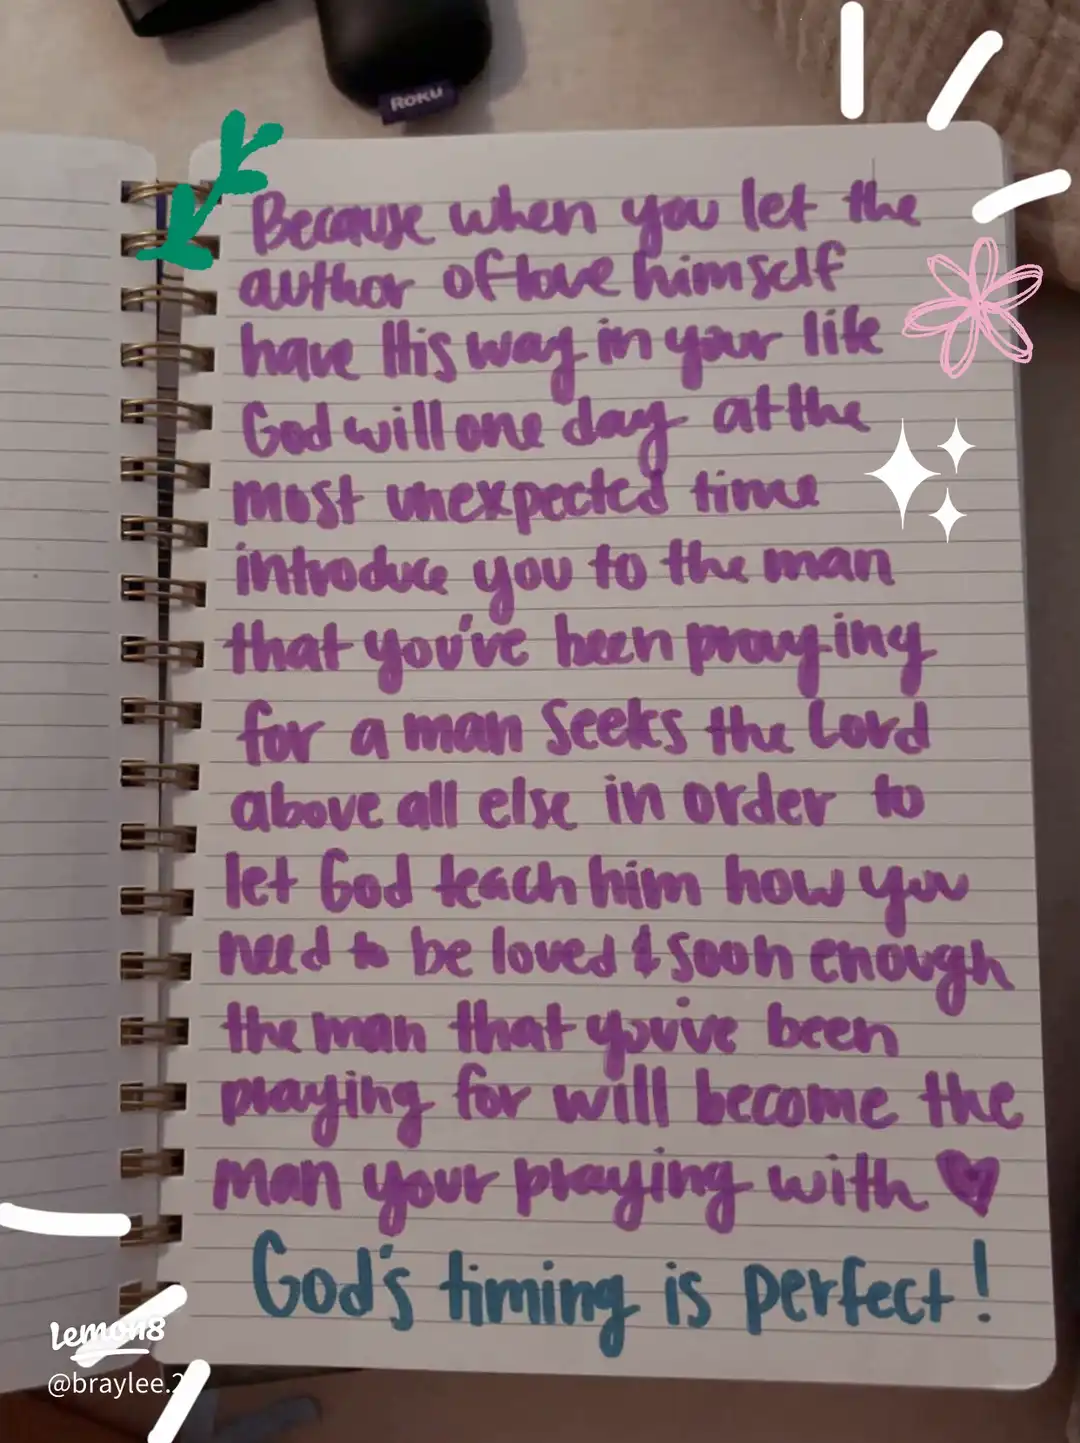 ROKU
Because when you let the
author of love himself
have His way in your life
God will one day at the
most unexpected time
introduce you to the man
that you've been praying
for a man seeks the Lord
above all else in order to
let God teach him how you
need to be loved & soon enough
the man that you've been
praying for will become the
man your praying with
God's timing is perfect!
lemon8
@braylee.2